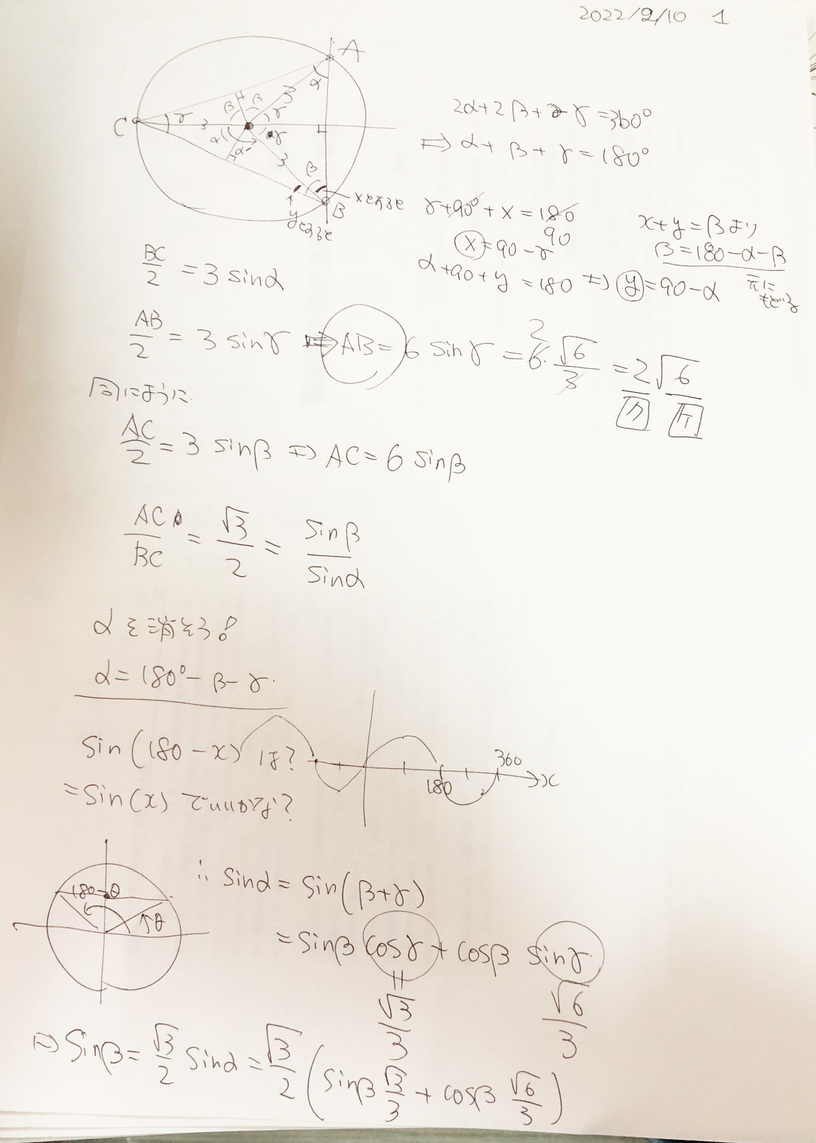 2022/2/10 1
A
α
C
γ 3
β β
3
γ
γ
α
α
3
β
B
xとおると
yとおると
2α+2β+2γ=360°
⇒ α+β+γ=180°
γ+90°+x=180
90
x=90-γ
α+90+y=180 ⇒ y=90-α
x+y=βより
β=180-α-β
元に
もどる
BC/2 = 3 sinα
AB/2 = 3 sinγ ⇒ AB = 6 sinγ = 6·√6/3 = 2√6
2
同にように
AC/2 = 3 sinβ ⇒ AC = 6 sinβ
AC/BC = √3/2 = sinβ/sinα
αを消そう!
α=180°-β-γ
sin(180-x) は?
=sin(x) でいいかな?
180
360
x
180-θ
θ
∴ sinα = sin(β+γ)
= sinβ cosγ + cosβ sinγ
=
√3/3
√6/3
⇒ sinβ = √3/2 sinα = √3/2 (sinβ √3/3 + cosβ √6/3)